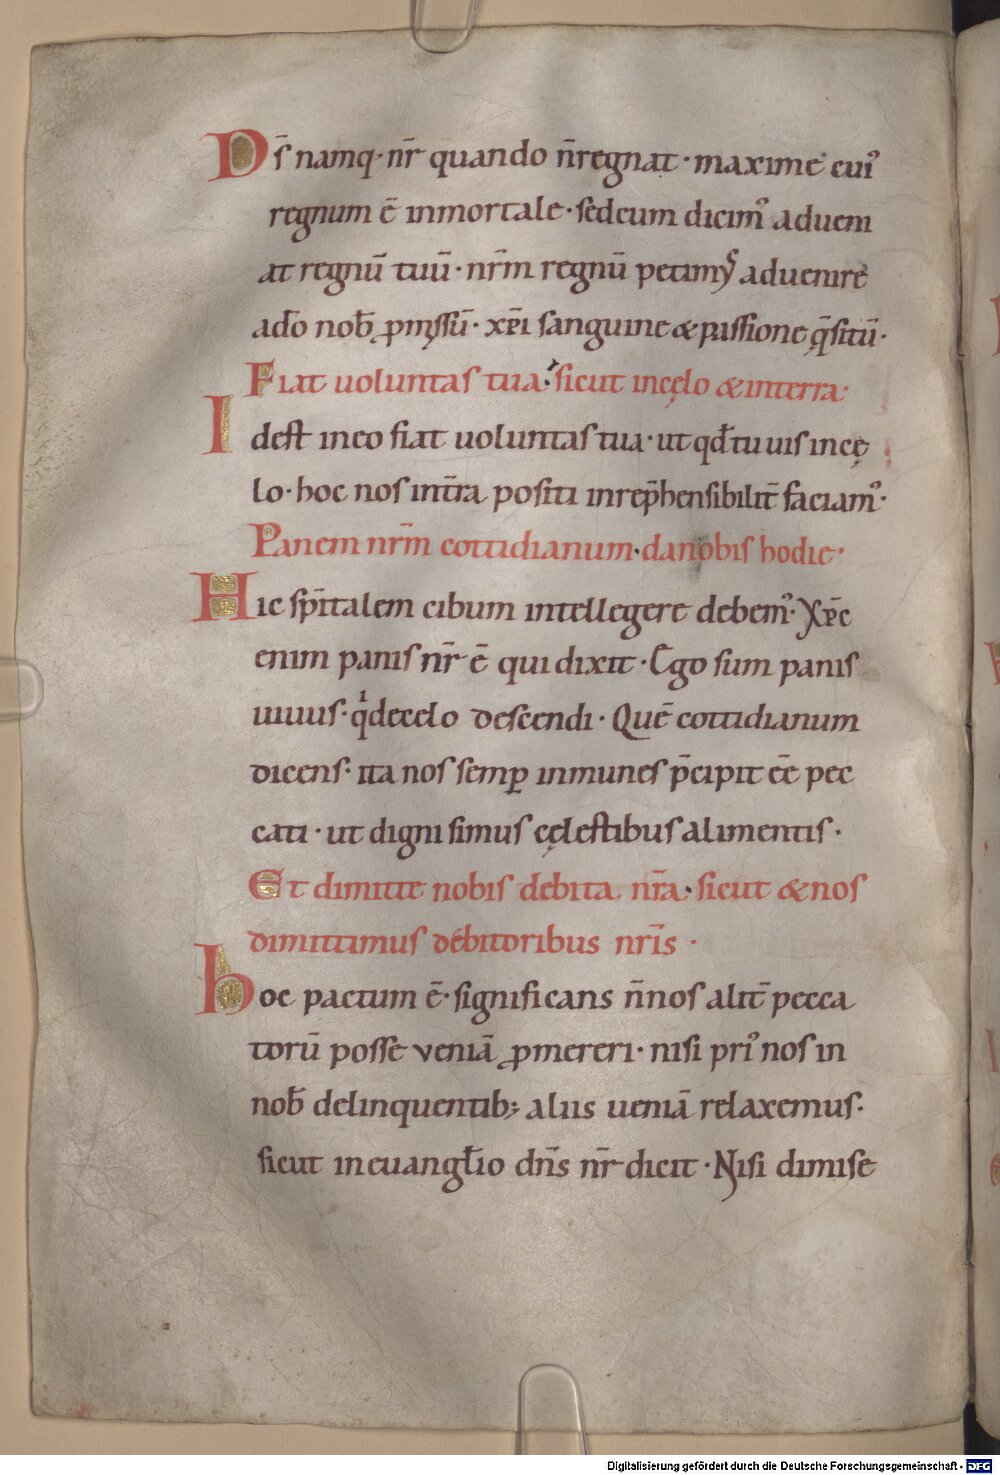 Ds̄ namq· nr̄ quando n̄regnat· maxime cui᾽
regnum ē inmortale· sedcum dicim᾽ adueni
at regnū tuū· nr̄m regnū petimus aduenire
ado nob̄ ꝓmissū· xp̄i sanguine &passione q̄sitū·
Fiat uoluntas tua· sicut incęlo &interra·
Idest ineo fiat uoluntas tua· ut qđtu uis incę
lo· hoc nos int̄ra positi inrep̄hensibilit̄ faciam᾽·
Panem nr̄m cottidianum· danobis hodie·
Hic sp̄italem cibum intellegere debem᾽· Xp̄c
enim panis nr̄ ē qui dixit· Ego sum panis
uiuus· qͥdecelo descendi· Quē cottidianum
dicens· ita nos semꝑ inmunes p̄cipit eē pec
cati· ut digni simus cęlestibus alimentis·
Et dimitte nobis debita nr̄a· sicut &nos
dimittimus debitoribus nr̄is·
hoc pactum ē· significans n̄nos alit̄ pecca
torū posse veniā ꝓmereri· nisi pri᾽ nos in
nob̄ delinquentib; aliis ueniā relaxemus·
sicut ineuangł̄io dn̄s nr̄ dicit· Nisi dimise
Digitalisierung gefördert durch die Deutsche Forschungsgemeinschaft - DFG